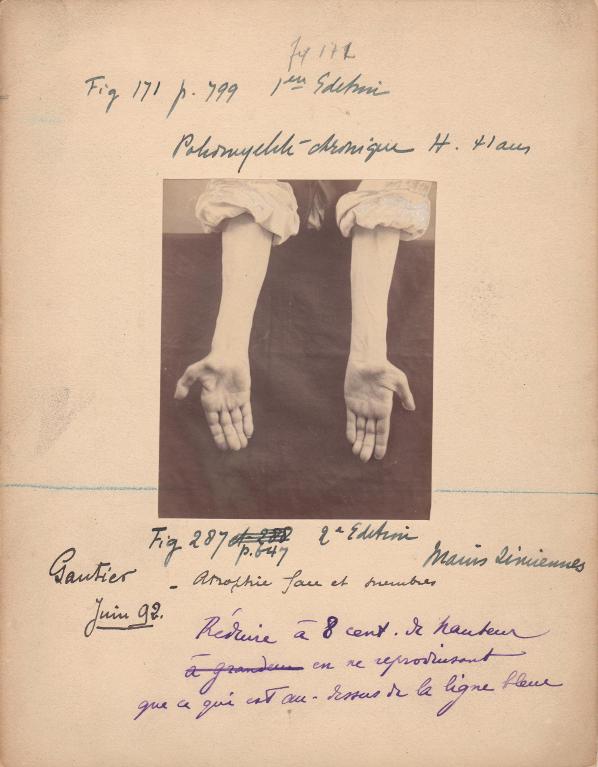 Fig 171
Fig 171 p. 799 1ère Edition
Poliomyélite chronique H. 41 ans
Fig 287 et 288 2e Edition
p. 647
Mains Simiennes
Gautier - Atrophie face et membres
Juin 92.
Réduire à 8 cent. de hauteur
à grandeur en ne reproduisant
que ce qui est au-dessus de la ligne bleue